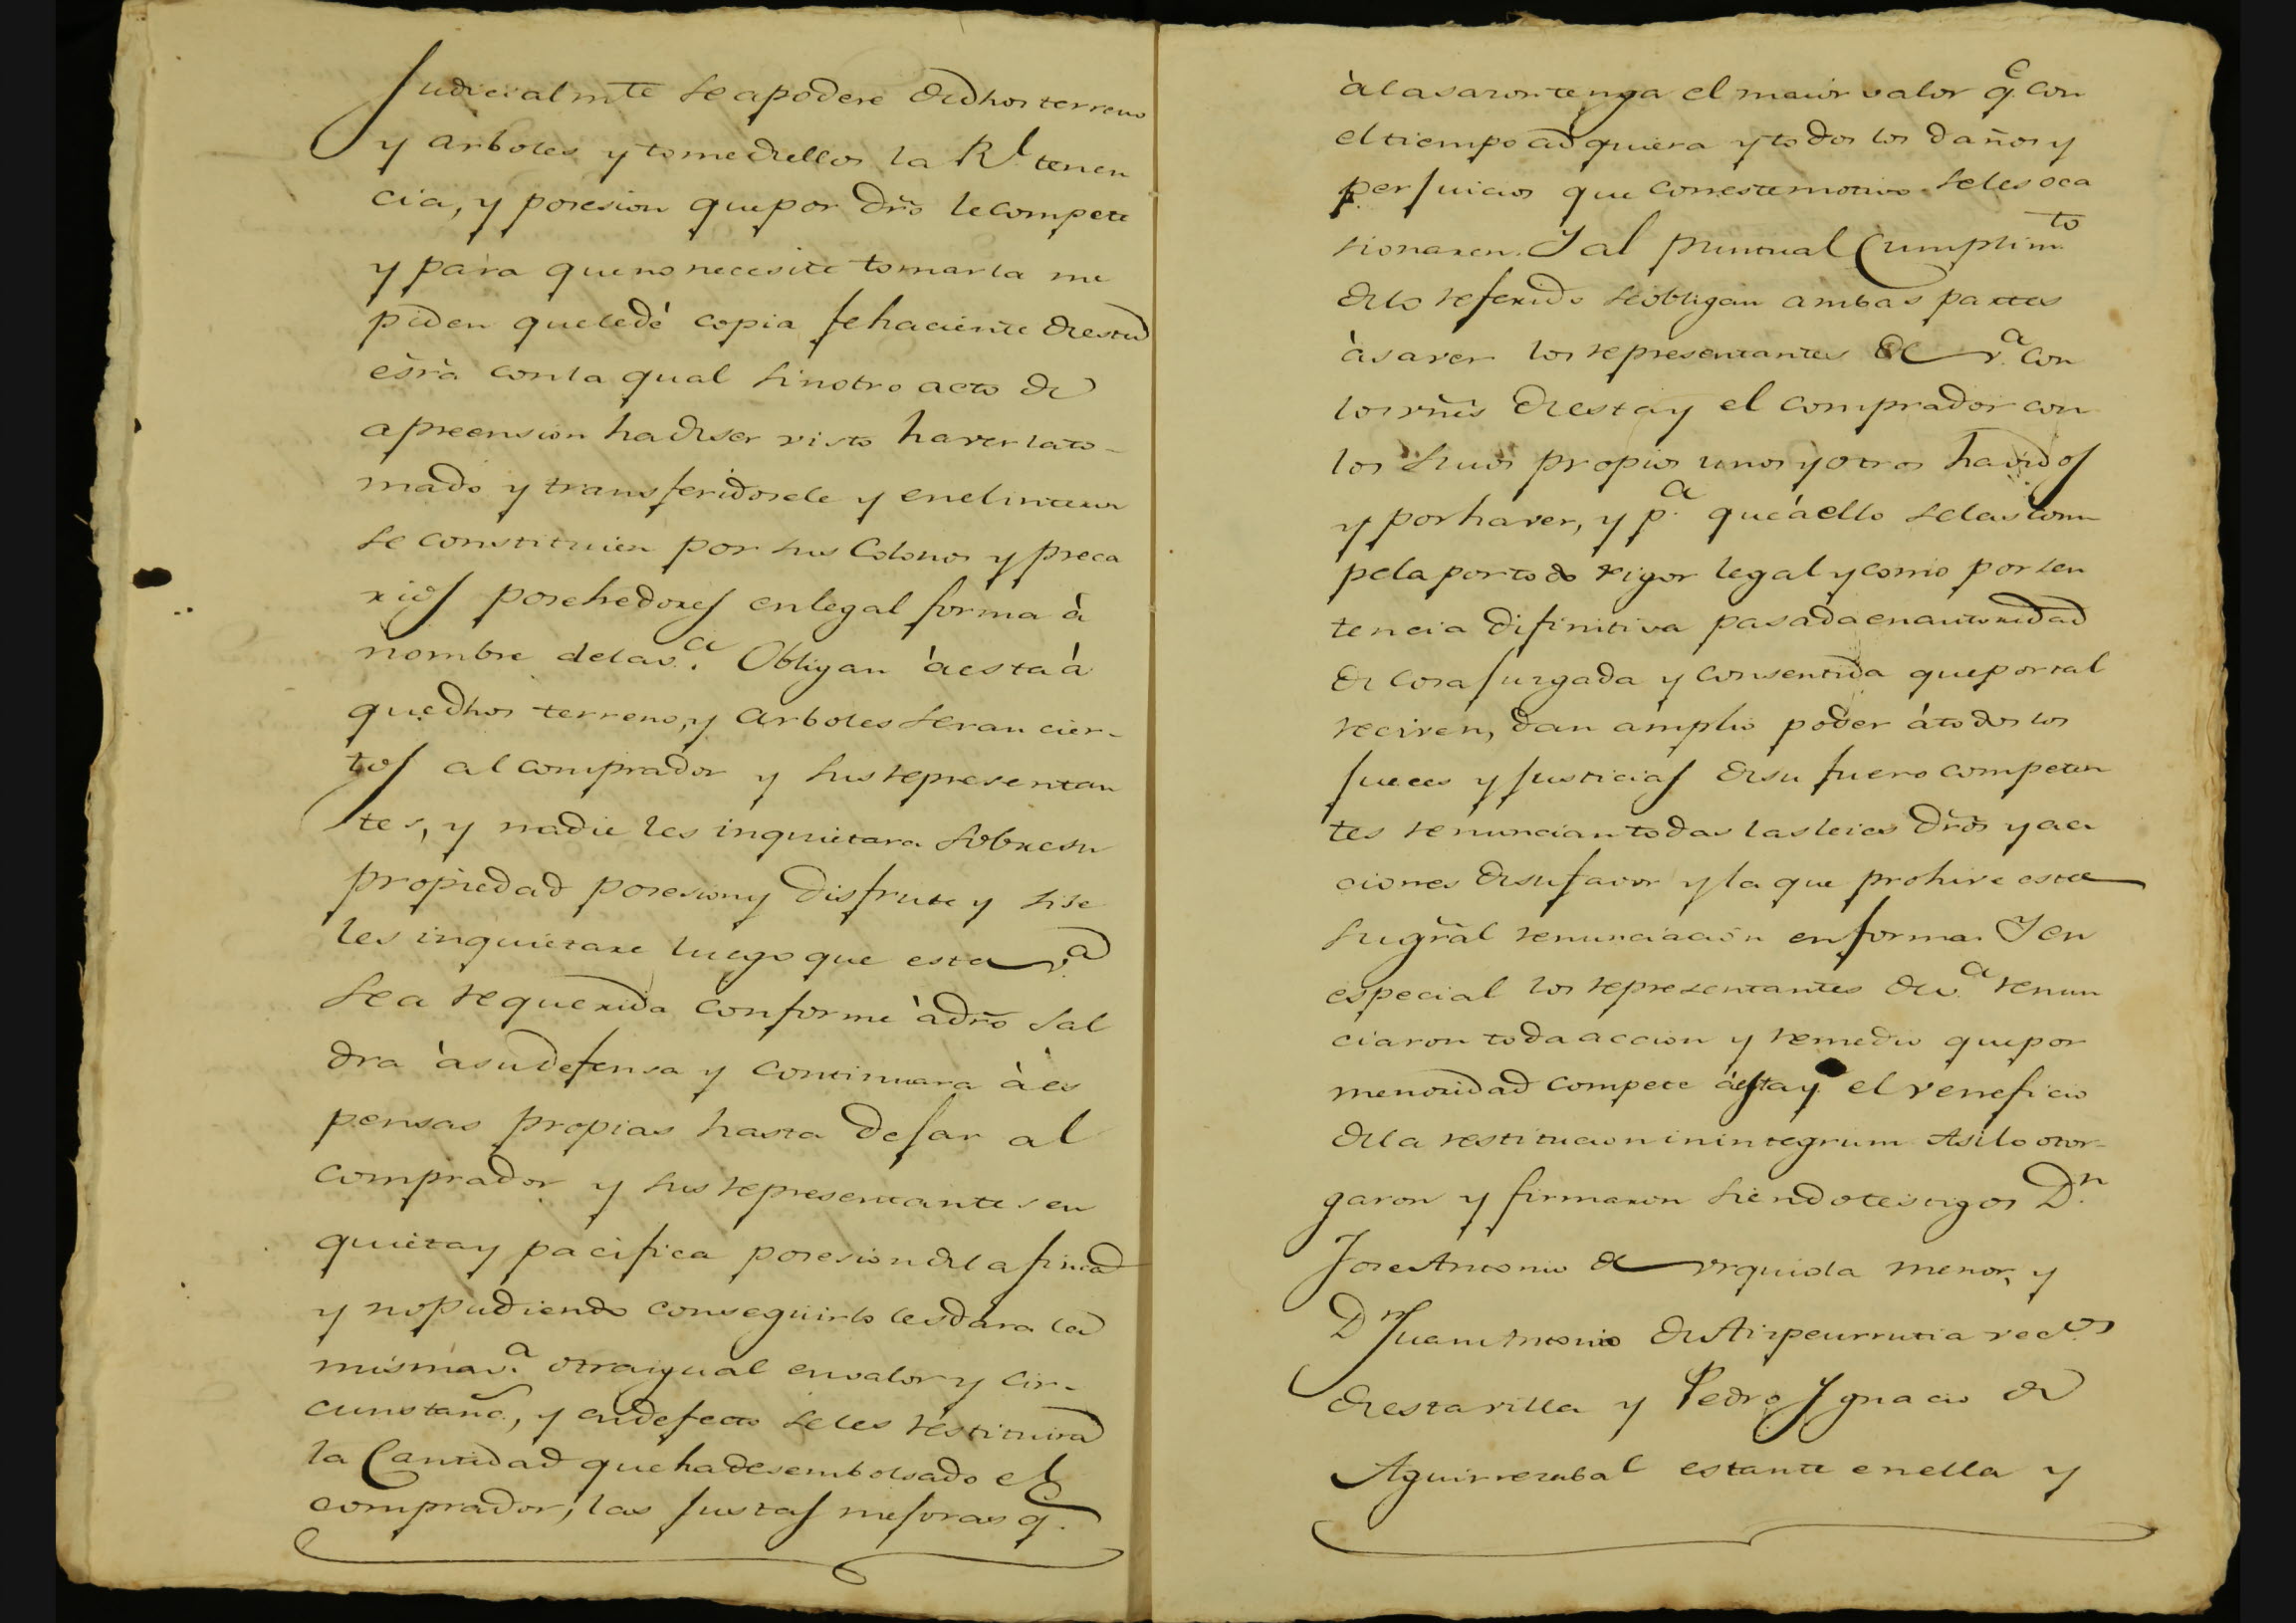 Judicialmte se apodere de dhos terreno
y arboles y tome de ellos la Rl. tenen
cia, y posesion que por dro le compete
y para que no necesite tomarla me
piden que le dé copia fehaciente de esta
esrã con la qual sin otro acto de
apreension ha de ser visto haverla to-
mado y transferidosele y en el interin
se constituien por sus Colonos y preca
rios posehedores en legal forma à
nombre de la v.a Obligan à esta à
que dhos terreno, y arboles seran cier-
tos al comprador y sus representan
tes, y nadie les inquietara sobre su
propiedad posesion y disfrute y si se
les inquietare luego que esta v.a
sea requerida conforme à dro sal
dra à su defensa y continuara à es
pensas propias hasta dejar al
comprador y sus representantes en
quieta y pacifica posesion de la finca
y no pudiendo conseguirlo les dara la
misma v.a otra igual en valor y cir-
cunstañc, y en defecto se les restituira
la Cantidad que ha desembolsado el
comprador, las justas mejoras q.
à la sazon tenga el maior valor q.e con
el tiempo adquiera y todos los daños y
perjuicios que con este motivo se les oca
sionaren. Y al puntual Cumplim.to
de lo referido se obligan ambas partes
à saver los representantes de v.a con
los vñes de esta y el comprador con
los suios propios unos y otros havidos
y por haver, y p.a que à ello se les com
pela por todo rigor legal y como por sen
tencia difinitiva pasada en autoridad
de cosa juzgada y consentida que por tal
reciven, dan amplio poder à todos los
jueces y justicias de su fuero competen
tes renuncian todas las leies dros y ac
ciones de su favor y la que prohive esta
su gral renunciación en forma. Y en
especial los representantes de v.a renun
ciaron toda accion y remedio que por
menoridad compete à esta y el veneficio
de la restitucion in integrum Asi lo otor-
garon y firmaron siendo testigos D.n
Jose Antonio de Vrquiola menor, y
D.n Juan Antonio de Aizpeurrutia vec.os
de esta villa y Pedro Ygnacio de
Aguirrezabal estante en ella y